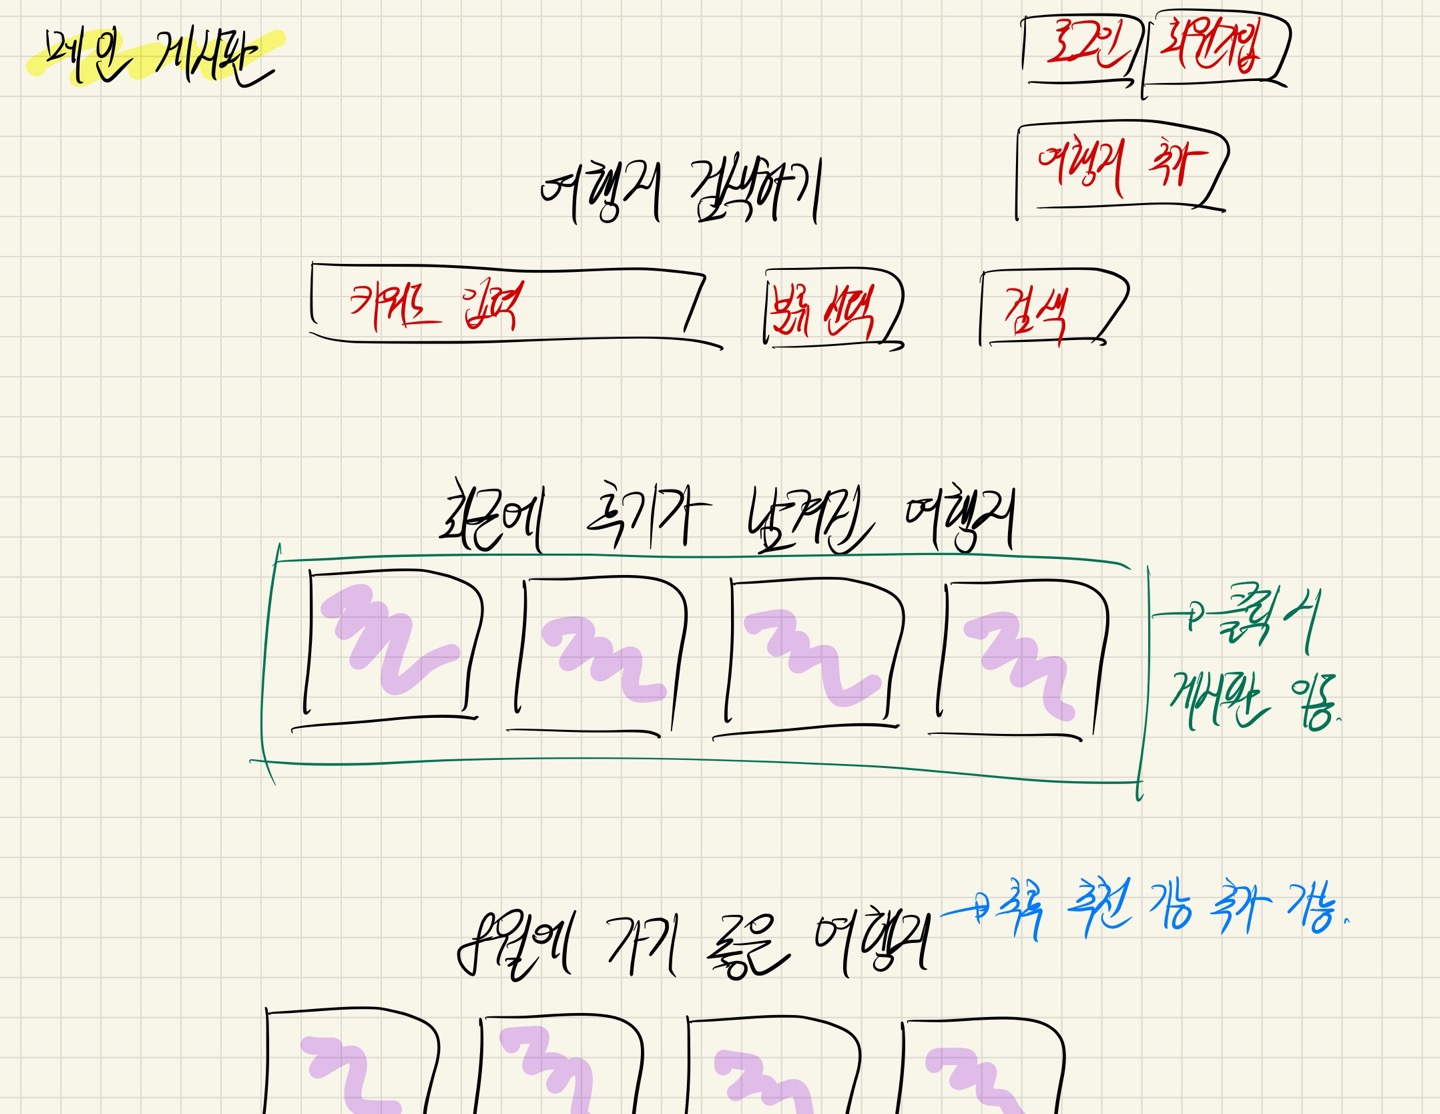 메인 게시판
로그인 회원가입
여행지 추가
여행지 검색하기
키워드 입력 분류 선택 검색
최근에 후기가 남겨진 여행지
→ 클릭 시
게시판 이동.
8월에 가기 좋은 여행지 → 추후 추천 기능 추가 가능.